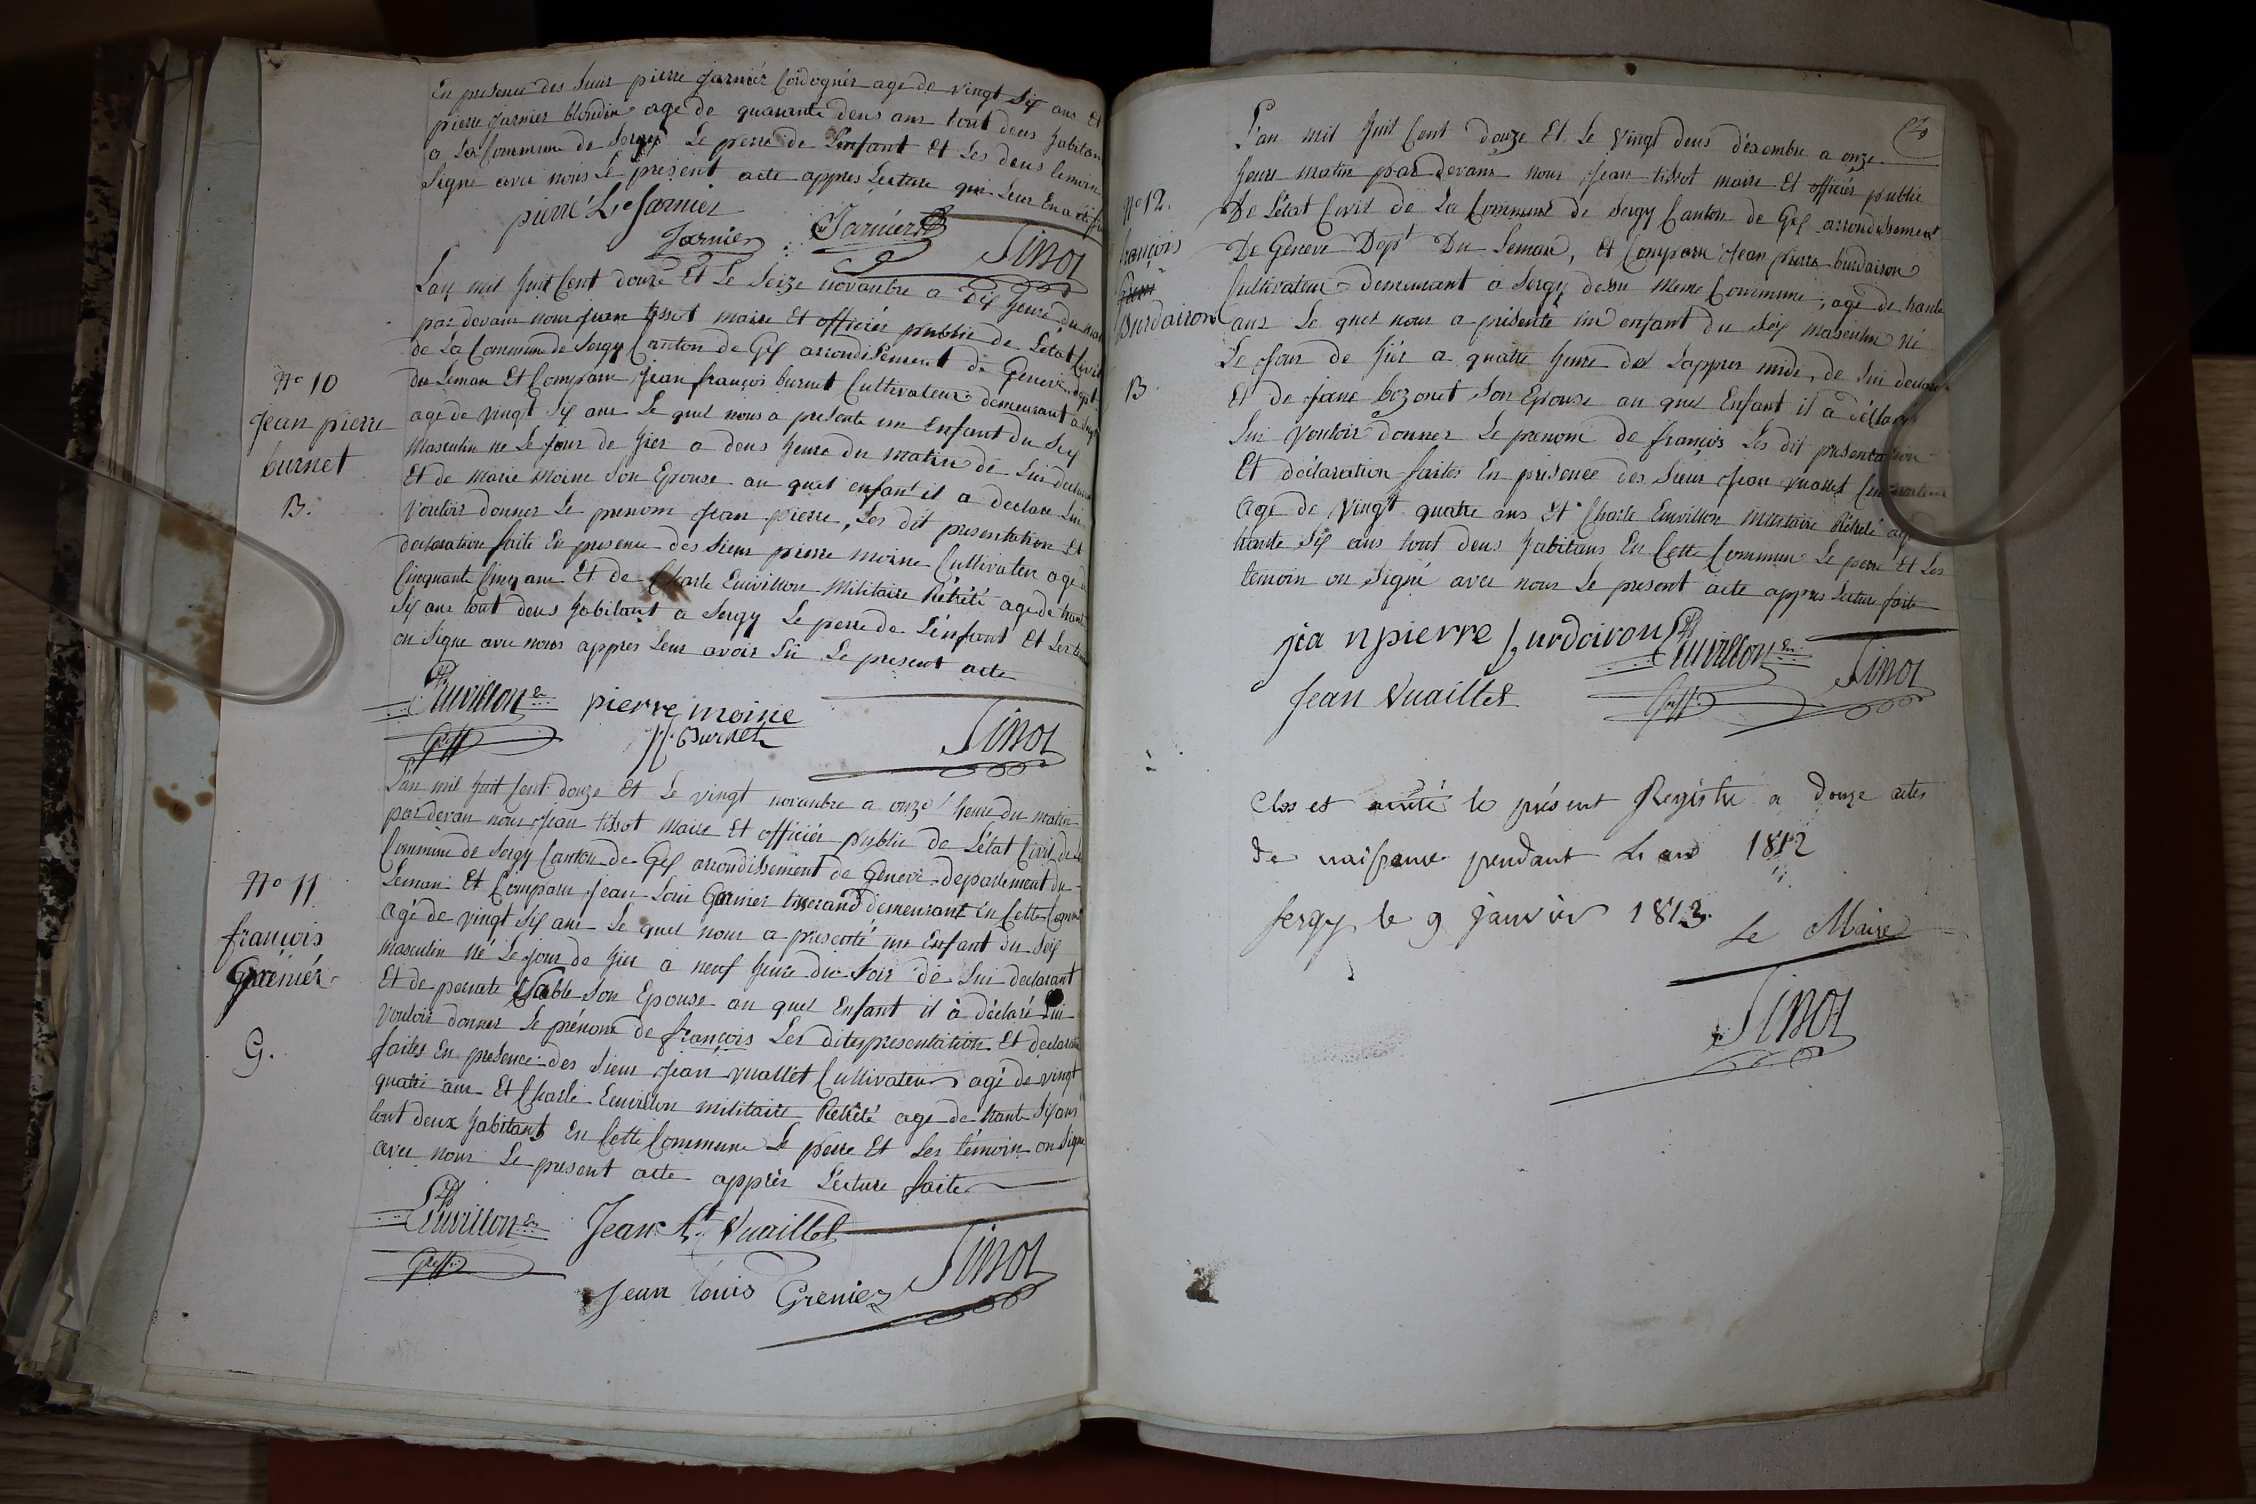 En presence des Sieur pierre Jarniér Cordogniér age de vingt Six ans Et
pierre Jarnier blondin age de quarante deus ans tout deus habitan
a La Commune de Sergy Le perre de L'enfant Et Les deus temoin
Signe avec nous Le présent acte appres Lecture qui Leur En a été
pierre L Jarnier
Jarnier Jarniér Tissot
Lan mil huit Cent douze Et Le Seize novanbre a dix heure du
par devant nous jean tissot maire Et officiér publie de L'état Civil
de La Commune de Sergy Canton de Gex arrondissement de Geneve dept
du Leman Et Comparu Jean françois burnet Cultivateur demeurant a
age de vingt Six ans Le quel nous a presente un Enfant du Sex
Masculin ne Le jour de hier a deus heure du matin de Lui declarant
Et de Marie Moine Son Epouse au quel enfant il a declare Lui
Vouloir donner Le prenom Jean pierre, Les dit presentation Et
declaration faite En presence des Sieur pierre moine Cultivateur age
Cinquante Cinq ans Et de Charle Emvillon Militaire Rétrété age de trante
Six ans tout deus habitant a Sergy Le perre de L'enfant Et Les
on Signe avec nous appres Leur avoir Lu Le present acte
N° 10
Jean pierre
burnet
B.
pierre moine
Jf. Burnet
Tissot
L'an mil huit Cent douze Et Le vingt novanbre a onze heure du matin
par devan nous Jean tissot Maire Et officiér publie de L'état Civil de La
Commune de Sergy Canton de Gex arrondissement de Geneve departement du
Leman Et Comparu Jean Loui Grenier tiserand demeurant En Cette
agé de vingt Six ans Le quel nous a presenté un Enfant du Sex
masculin né Le jour de hier a neuf heure du Soir de Lui declarant
Et de Son Epouse au quel Enfant il à déclaré Lui
vouloir donner Le prénom de françois Les dites presentation Et
faites En presence des Sieur Jean vuallet Cultivateur agé de vingt
quatre ans Et Charle Emvillon militaire Rétrété age de trante Six ans
tout deux habitans En Cette Commune Le perre Et Les témoin on Signe
avec nous Le present acte apprés Lécture faite
N° 11
françois
Greniér
G.
Jean Vuaillet
Tissot
Jean Louis Grenier
L'an mil huit Cent douze Et Le vingt deus désembre a onze
heure matin par devant nous Jean tissot maire Et officiér publie
De L'état Civil de La Commune de Sergy Canton de Gex arrondissement
De Geneve Dept Du Leman, Et Comparu Jean pierre burdairon
Cultivateur demeurant a Sergy Meme Commune, agé de trante
ans Le quel nous a présenté un enfant du Sex Masculin Né
Le jour de hiér a quatre heure de L'appres midi, de Lui declarant
Et de jeane bozonet Son Epouse au quel Enfant il a déclaré
Lui Vouloir donner Le prenom de françois Les dit presentation
Et déclaration faites En présence des Sieur Jean vuallet Cultivateur
Age de Vingt quatre ans Et Charle Emvillon Militaire Rétrété age
trante Six ans tout deus habitans En Cette Commune Le perre Et Les
temoin on Signé avec nous Le present acte appres Lecture faite
N° 12.
françois
Burdairon
B
jea npierre burdairon
Tissot
Jean Vuaillet
Clos et arrété le présent Registre a douze actes
de naissance pendant L'an 1812
Sergy le 9 janvier 1813.
Le Maire
Tissot